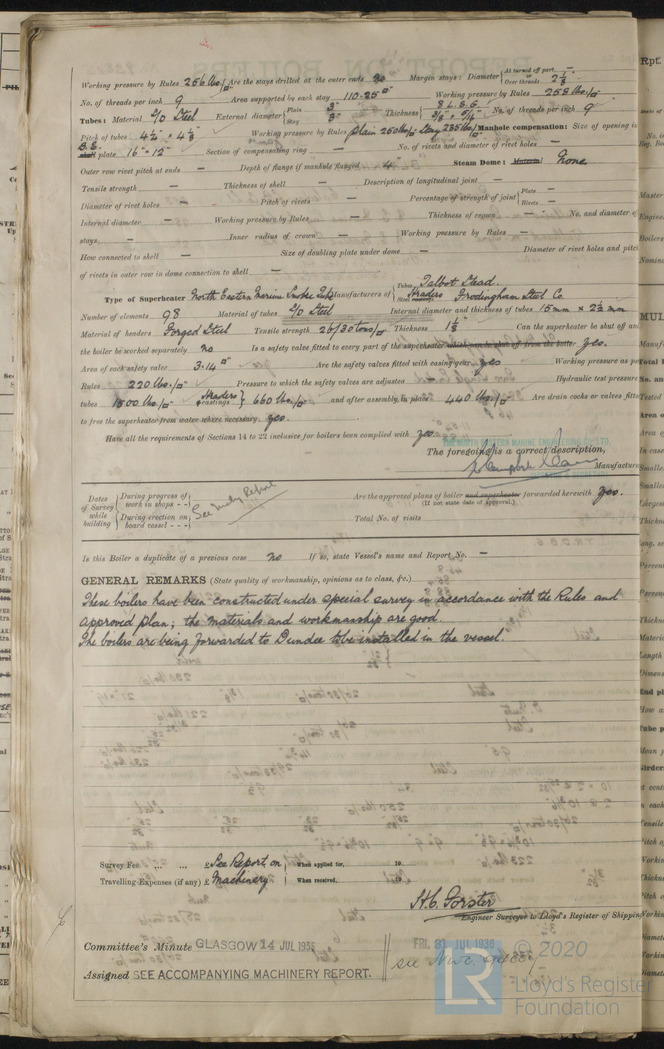 Working pressure by Rules 256 lbs/□" Are the stays drilled at the outer ends no Margin stays: Diameter { At turned off part, — or Over threads 2 1/8"
No. of threads per inch 9 Area supported by each stay 110.25 □" Working pressure by Rules 258 lbs/□"
Tubes: Material S/D Steel External diameter { Plain 3" Stay 3" Thickness { 8 L.S.G. No. of threads per inch 9
Pitch of tubes 4 1/4" × 4 1/8" Working pressure by Rules Plain 250 lbs/□" Stay 235 lbs/□" Manhole compensation: Size of opening in
plate 16" × 12" Section of compensating ring — No. of rivets and diameter of rivet holes —
Outer row rivet pitch at ends — Depth of flange if manhole flanged 4" Steam Dome: Material None
Tensile strength — Thickness of shell — Description of longitudinal joint —
Diameter of rivet holes — Pitch of rivets — Percentage of strength of joint { Plate — Rivets —
Internal diameter — Working pressure by Rules — Thickness of crown — No. and diameter of
stays — Inner radius of crown — Working pressure by Rules —
How connected to shell — Size of doubling plate under dome — Diameter of rivet holes and pitch
of rivets in outer row in dome connection to shell —
Type of Superheater North Eastern Marine Smoke Tube Manufacturers of { Tubes Talbot Stead. Headers Frodingham Steel Co.
Number of elements 98 Material of tubes S/D Steel Internal diameter and thickness of tubes 15 mm × 2 1/2 mm
Material of headers Forged Steel Tensile strength 26/30 tons/□" Thickness 1 1/8" Can the superheater be shut off and
the boiler be worked separately no Is a safety valve fitted to every part of the superheater which can be shut off from the boiler yes.
Area of each safety valve 3.14 □" Are the safety valves fitted with easing gear yes Working pressure as per
Rules 220 lbs./□" Pressure to which the safety valves are adjusted Hydraulic test pressure
tubes 1500 lbs./□" Headers castings } 660 lbs./□" and after assembly in place 440 lbs./□" Are drain cocks or valves fitted
to free the superheater from water where necessary. yes.
Have all the requirements of Sections 14 to 22 inclusive for boilers been complied with yes.
THE NORTH EASTERN MARINE ENGINEERING CO. LTD.
The foregoing is a correct description,
Manufacturer
Dates of Survey while building { During progress of work in shops - - During erection on board vessel - - - } See Mchy. Report
Are the approved plans of boiler and superheater forwarded herewith yes.
(If not state date of approval.)
Total No. of visits
Is this Boiler a duplicate of a previous case no If so, state Vessel's name and Report No. —
GENERAL REMARKS (State quality of workmanship, opinions as to class, &c.)
These boilers have been constructed under special survey in accordance with the Rules and
approved plan; the materials and workmanship are good.
The boilers are being forwarded to Dundee to be installed in the vessel.
Survey Fee ... ... £ See Report on When applied for, 19
Travelling Expenses (if any) £ Machinery When received, 19
H.C. Forster
Engineer Surveyor to Lloyd's Register of Shipping
Committee's Minute GLASGOW 14 JUL 1936 FRI. 31 JUL 1936
Assigned SEE ACCOMPANYING MACHINERY REPORT.
© 2020
LR
Lloyd's Register
Foundation